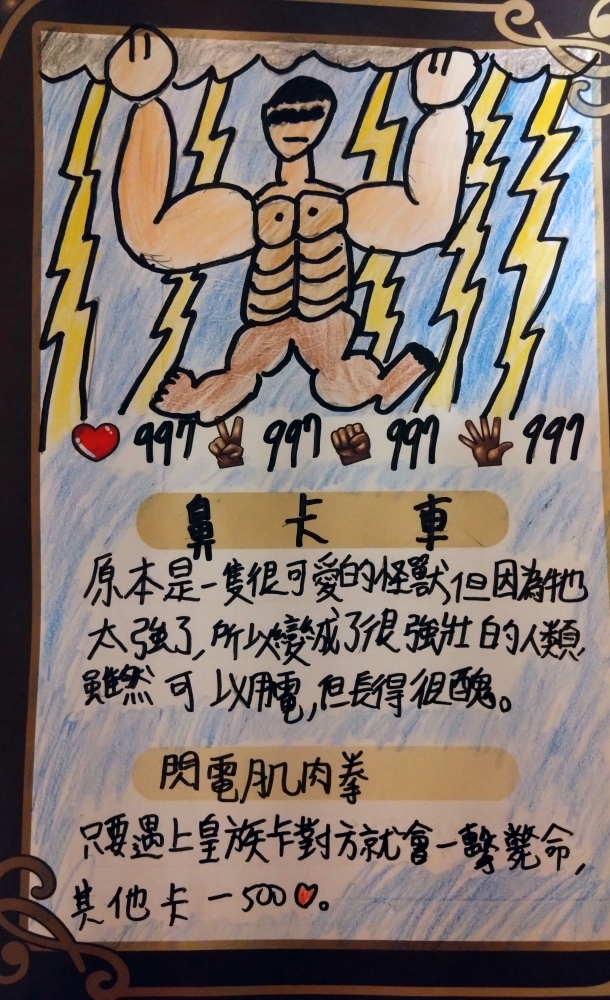 997 997 997 997
鼻卡車
原本是一隻很可愛的怪獸,但因為牠
太強了,所以變成了很強壯的人類,
雖然可以用電,但長得很醜。
閃電肌肉拳
只要遇上皇族卡對方就會一擊斃命,
其他卡-500。